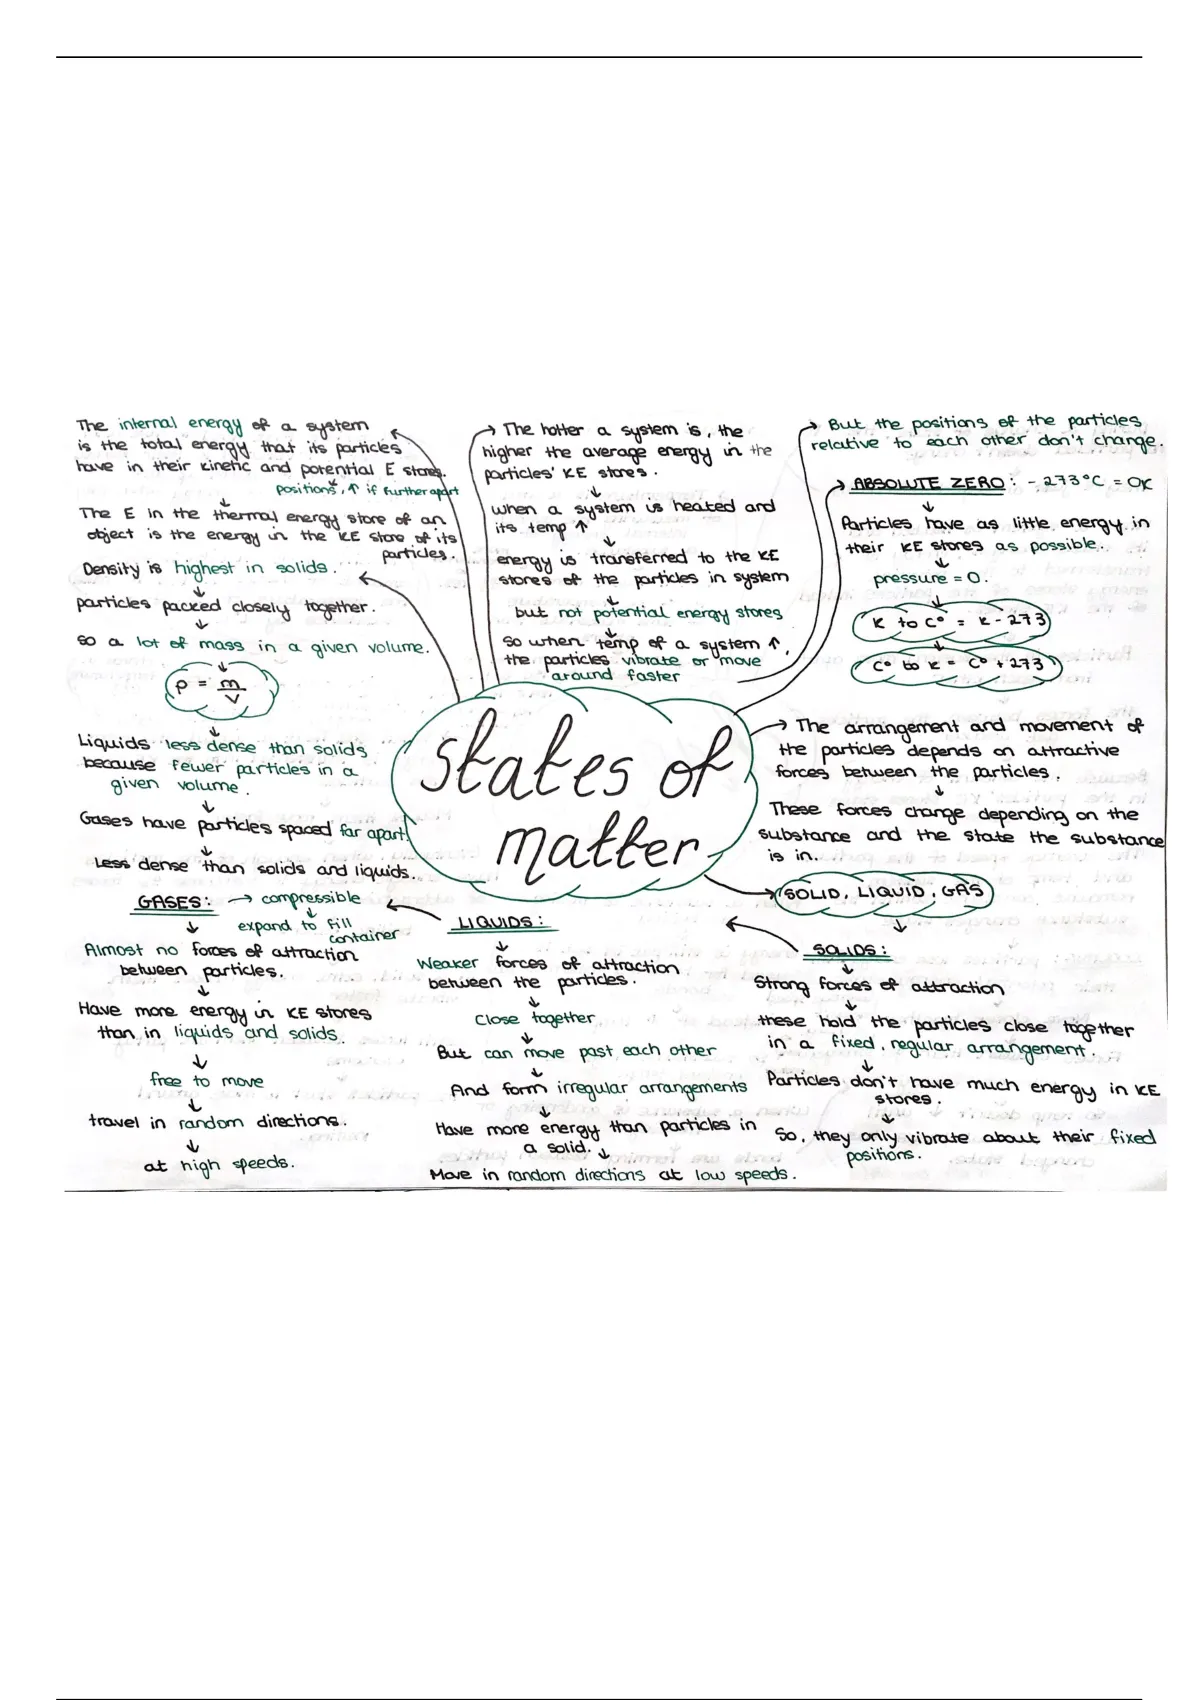 The internal energy of a system
is the total energy that its particles
have in their kinetic and potential E stores.
positions, ↑ if further apart
↓
The E in the thermal energy store of an
object is the energy in the KE store of its
particles.
Density is highest in solids.
↓
particles packed closely together.
↓
so a lot of mass in a given volume.
↓
ρ = m
V
↓
Liquids less dense than solids
because fewer particles in a
given volume.
↓
Gases have particles spaced far apart.
↓
Less dense than solids and liquids.
→ The hotter a system is, the
higher the average energy in the
particles' KE stores.
↓
When a system is heated and
its temp ↑
↓
energy is transferred to the KE
stores of the particles in system
↓
but not potential energy stores
↓
So when temp of a system ↑,
the particles vibrate or move
around faster
→ But the positions of the particles
relative to each other don't change.
→ ABSOLUTE ZERO: -273°C = 0K
↓
Particles have as little energy in
their KE stores as possible.
↓
pressure = 0.
↓
K to C° = K - 273
↓
C° to K = C° + 273
States of
matter
→ The arrangement and movement of
the particles depends on attractive
forces between the particles.
↓
These forces change depending on the
substance and the state the substance
is in.
SOLID, LIQUID, GAS
↓
SOLIDS:
↓
Strong forces of attraction
↓
these hold the particles close together
in a fixed, regular arrangement.
↓
Particles don't have much energy in KE
stores.
↓
So, they only vibrate about their fixed
positions.
LIQUIDS:
↓
Weaker forces of attraction
between the particles.
↓
Close together
↓
But can move past each other
↓
And form irregular arrangements
↓
Have more energy than particles in
a solid. ↓
Move in random directions at low speeds.
GASES: → compressible
↓
expand to fill
container
↓
Almost no forces of attraction
between particles.
↓
Have more energy in KE stores
than in liquids and solids.
↓
free to move
↓
travel in random directions.
↓
at high speeds.